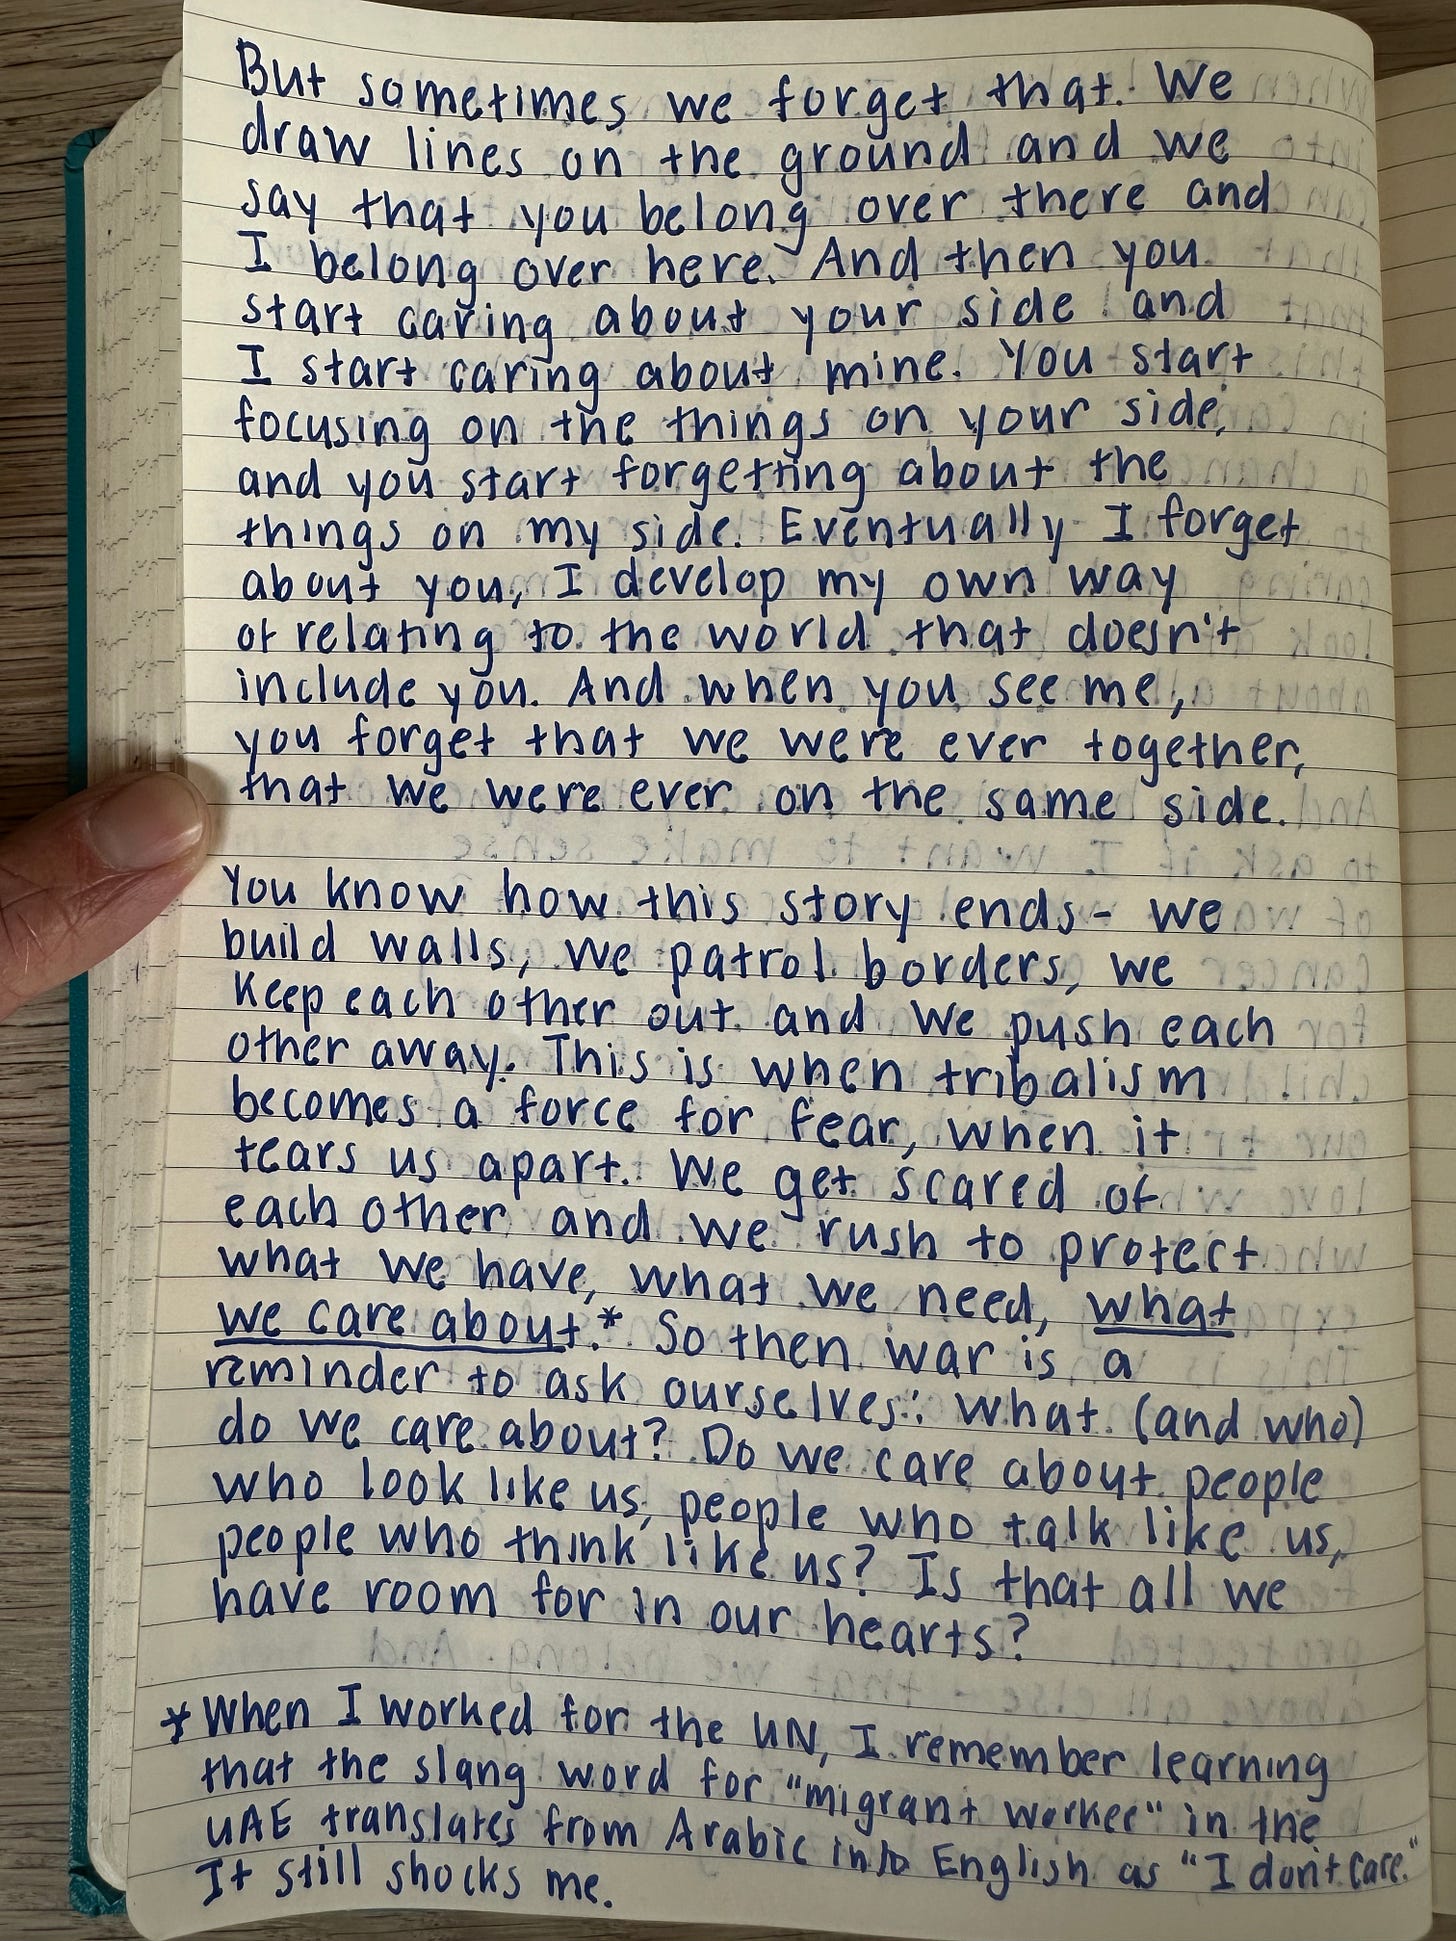 But sometimes we forget that. We
draw lines on the ground and we
say that you belong over there and
I belong over here. And then you
start caring about your side and
I start caring about mine. You start
focusing on the things on your side,
and you start forgetting about the
things on my side. Eventually I forget
about you, I develop my own way
of relating to the world that doesn't
include you. And when you see me,
you forget that we were ever together,
that we were ever on the same side.
You know how this story ends - we
build walls, we patrol borders, we
keep each other out and we push each
other away. This is when tribalism
becomes a force for fear, when it
tears us apart. We get scared of
each other and we rush to protect
what we have, what we need, what
we care about.* So then war is a
reminder to ask ourselves: what (and who)
do we care about? Do we care about people
who look like us, people who talk like us,
people who think like us? Is that all we
have room for in our hearts?
* When I worked for the UN, I remember learning
that the slang word for "migrant worker" in the
UAE translates from Arabic into English as "I don't care."
It still shocks me.